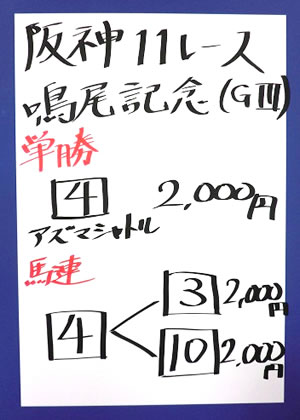 阪神11レース
鳴尾記念(GⅢ)
単勝
4 2,000円
アズマシャトル
馬連
3 2,000円
4
10 2,000円